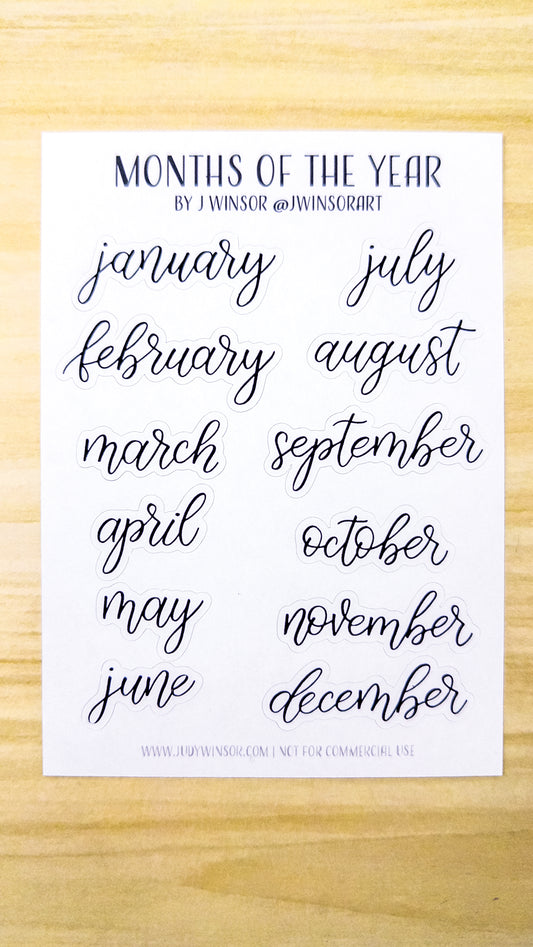 MONTHS OF THE YEAR
BY J WINSOR @JWINSORART
january
february
march
april
may
june
july
august
september
october
november
december
WWW.JUDYWINSOR.COM | NOT FOR COMMERCIAL USE